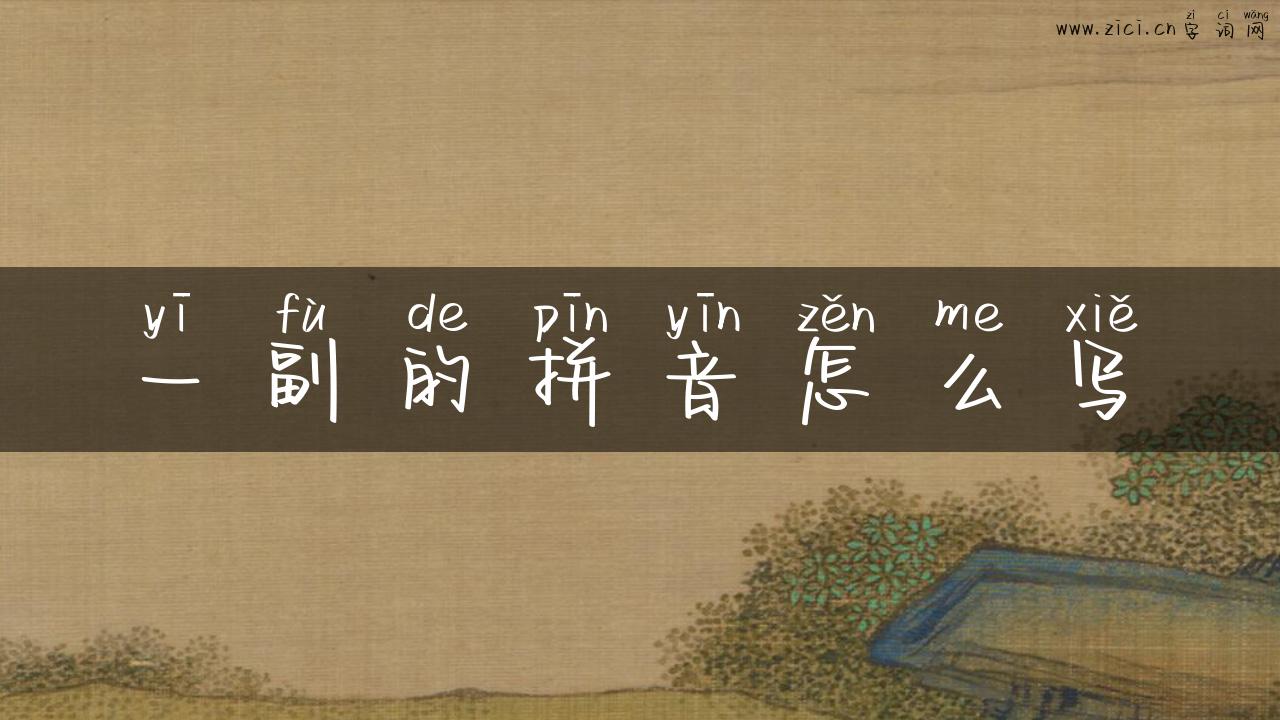 zì cí wǎng
www.zici.cn 字词网
yī fù de pīn yīn zěn me xiě
一副的拼音怎么写